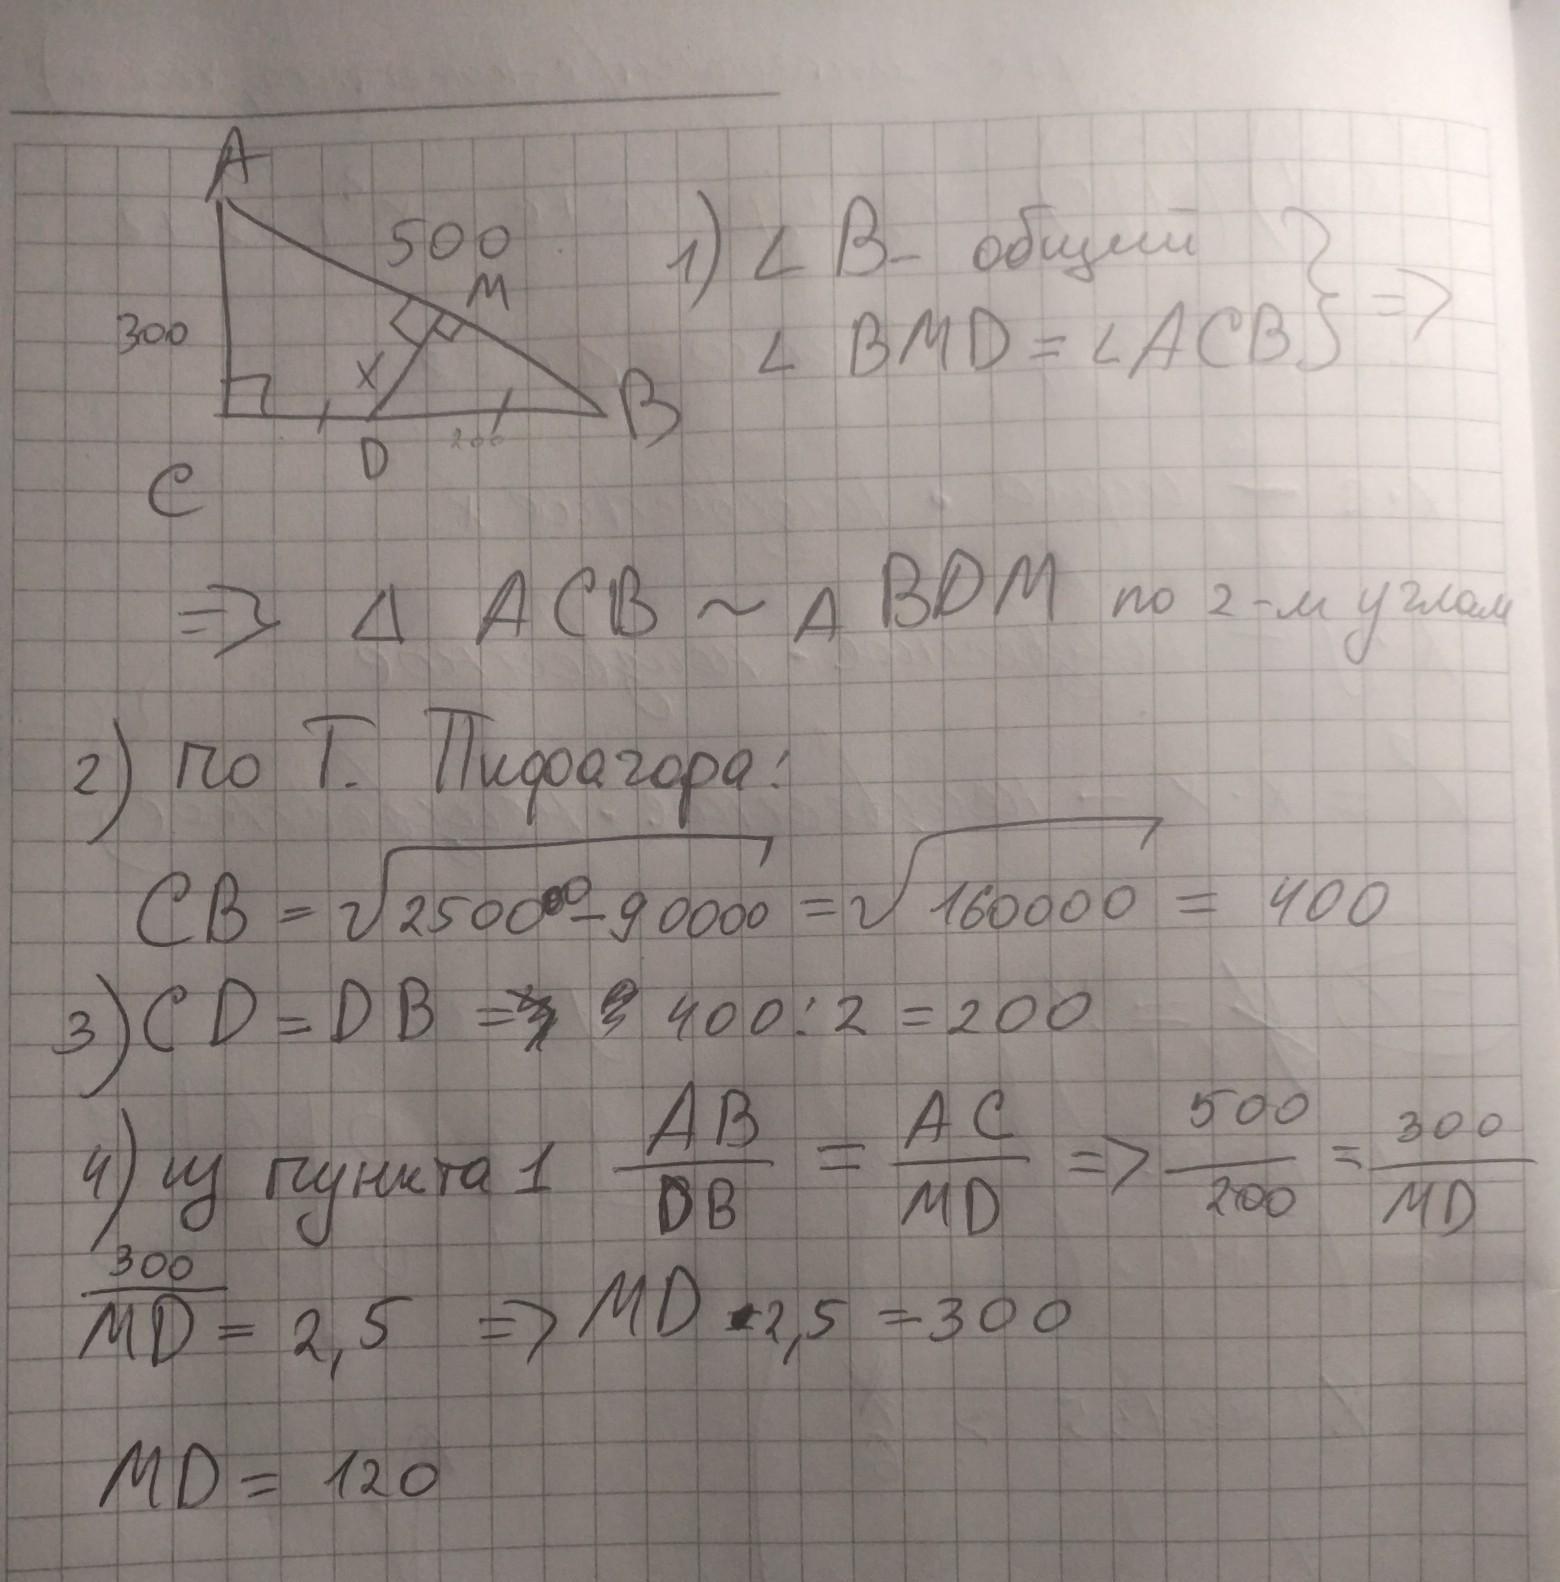 A
500
M
300
X
D
200
B
C
1) ∠ B - общий
∠ BMD = ∠ ACB } =>
=> Δ ACB ~ Δ BDM по 2-м углам
2) по Т. Пифоагора:
CB = √250000 - 90000 = √160000 = 400
3) CD = DB = 400 : 2 = 200
4) из пункта 1 AB/DB = AC/MD => 500/200 = 300/MD
300/MD = 2,5 => MD · 2,5 = 300
MD = 120